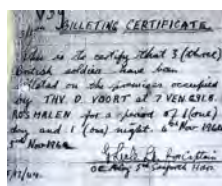 BILLETING CERTIFICATE
This is to certify that 3 (three)
British soldiers have been
billeted on the premises occupied
by THV. D. VOORT at 7 VENGSLR
ROSMALEN for a period of 1 (one)
day and 1 (one) night 4th Nov 1944
5th Nov 1944
Captain
OC 5th